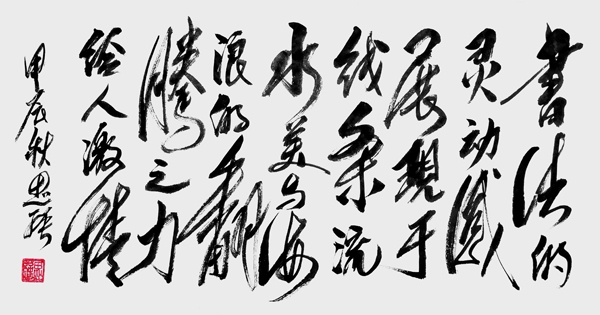 書法的
灵动感
展現于
线条流
水美与海
浪的翻
腾之力
给人激情
甲辰秋思